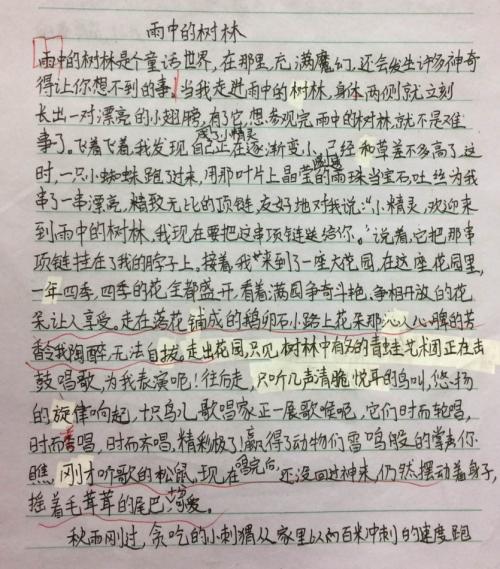 雨中的树林
雨中的树林是个童话世界,在那里充满魔幻,还会发生许多神奇
得让你想不到的事。当我走进雨中的树林,身体两侧就立刻
长出一对漂亮的小翅膀,有了它,想参观完雨中的树林就不是难
成了小精灵
事了。飞着飞着,我发现自己正在逐渐变小,已经和草差不多高了,这
时,一只小蜘蛛跑了过来,用那叶片上晶莹的雨珠当宝石吐丝为我
串了一串漂亮,精致无比的项链,友好地对我说:“小精灵,欢迎来
到雨中的树林,我现在要把这串项链送给你。”说着,它把那串
项链挂在了我的脖子上。接着,我来到了一座大花园,在这座花园里,
一年四季,四季的花全都盛开,看着满园争奇斗艳,争相开放的花
朵让人享受。走在落花铺成的鹅卵石小路上花朵那沁人心脾的芳
香令我陶醉,无法自拔,走出花园,只见树林中有名的青蛙艺术团正在击
鼓唱歌,为我表演呢!往后走,只听几声清脆悦耳的鸟叫,悠扬
的旋律响起,十只鸟儿歌唱家正一展歌喉呢,它们时而轮唱,
时而唱,时而齐唱,精彩极了!赢得了动物们雷鸣般的掌声你
瞧,刚才听歌的松鼠,现在唱完后,还没回过神来,仍然摆动着身子,
摇着毛茸茸的尾巴,十分可爱。
秋雨刚过,贪吃的小刺猬从家里以百米冲刺的速度跑